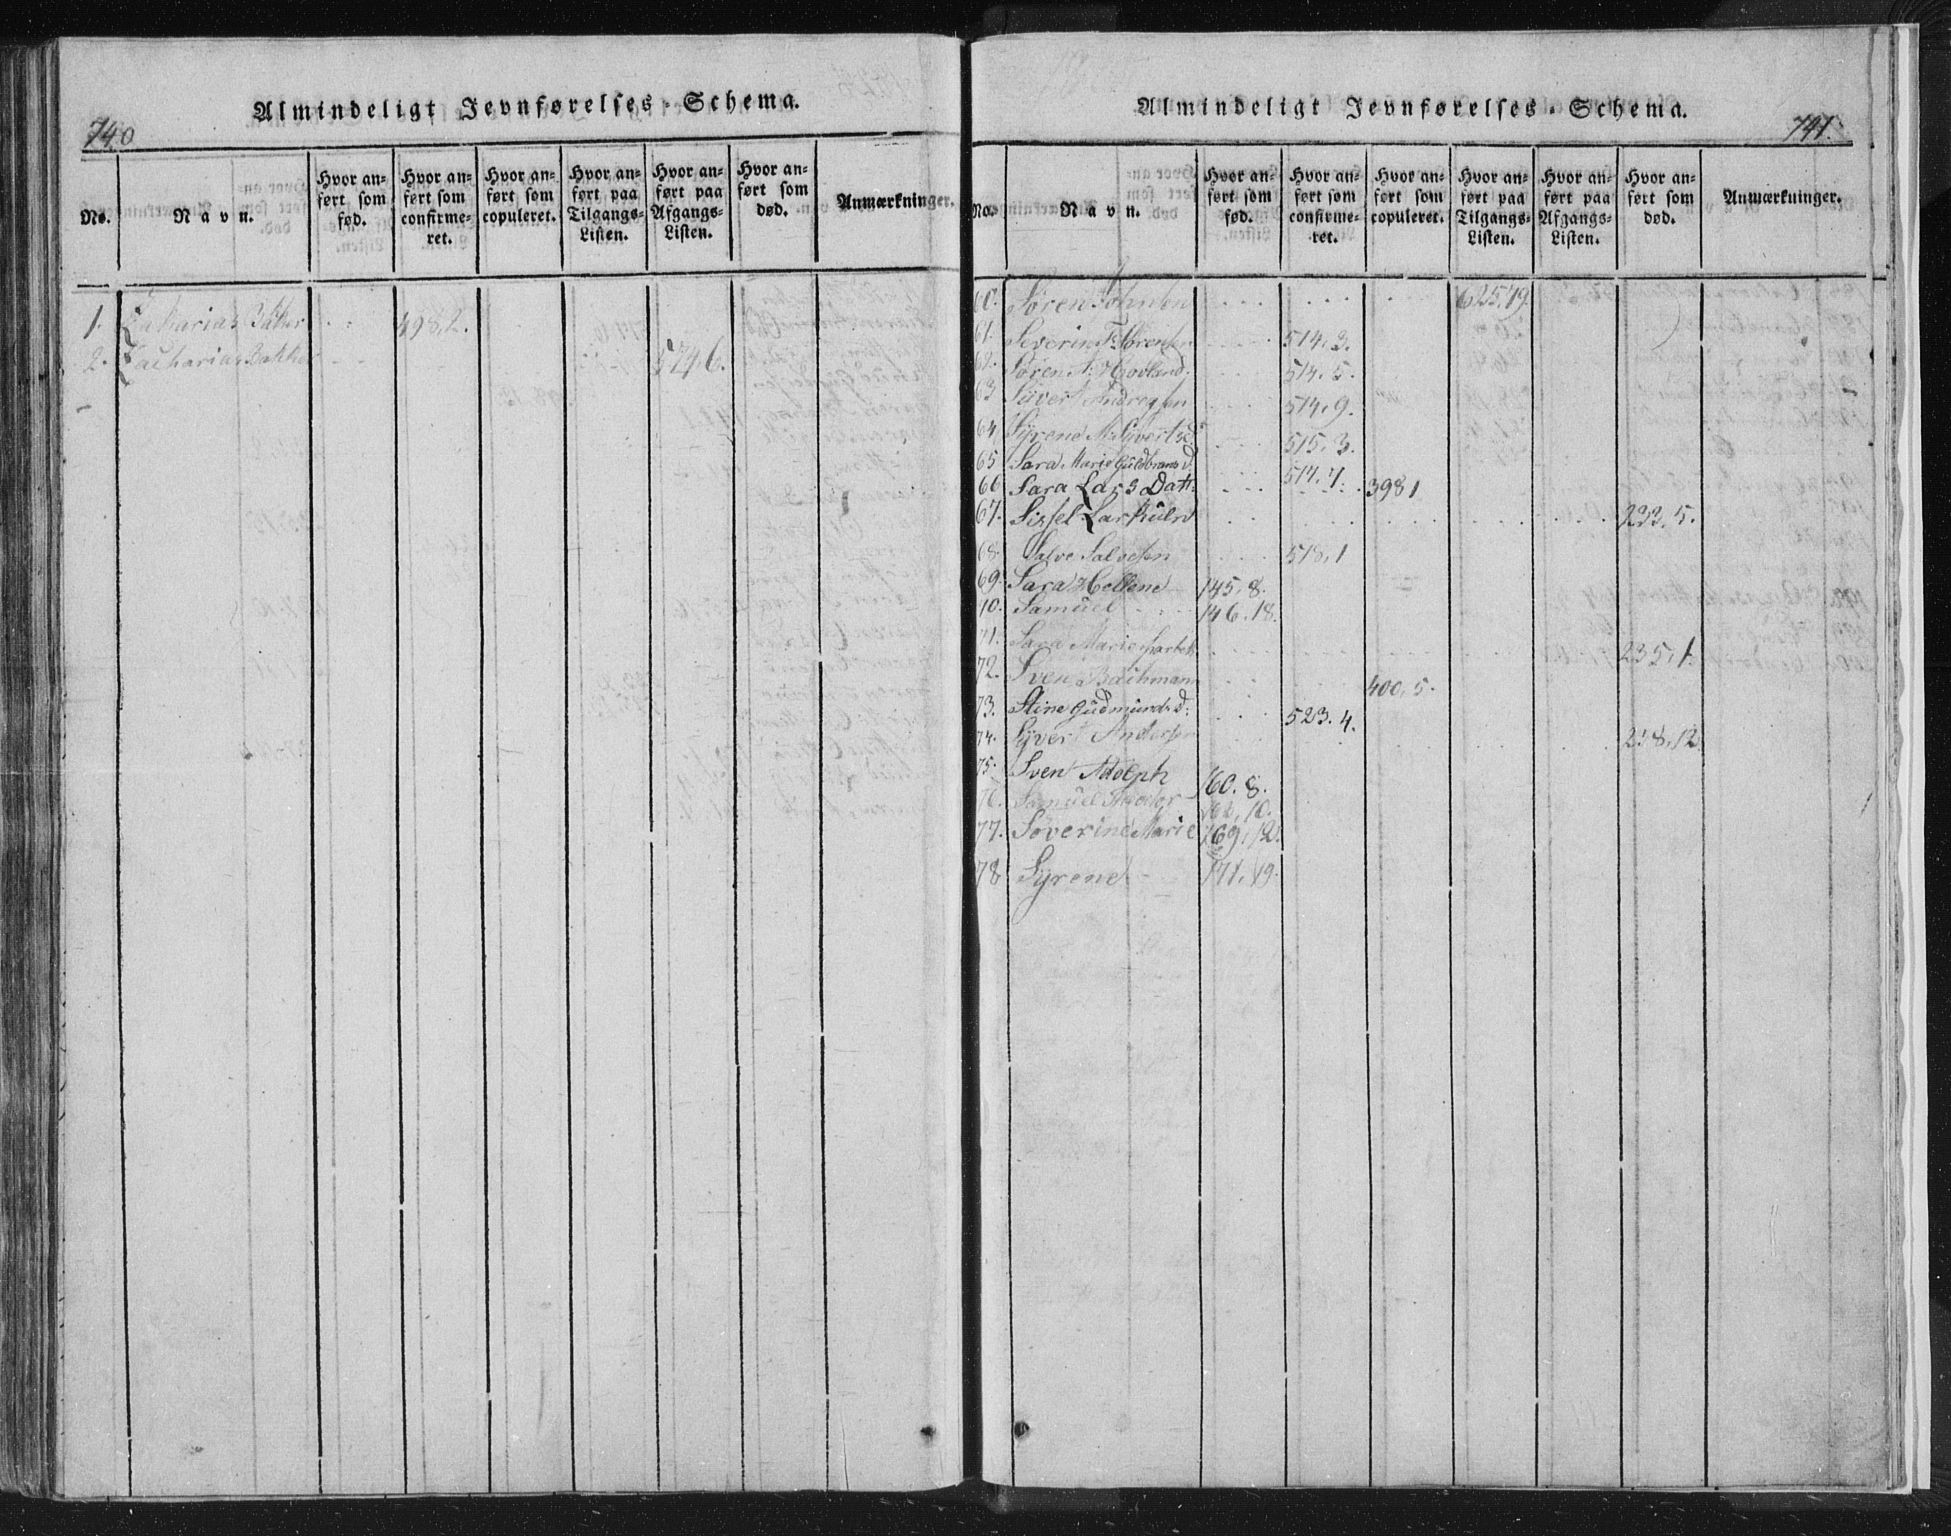 Almindeligt Jevnførelses-Schema.
740
No.
Navn.
Hvor anført som fød.
Hvor anført som confirmeret.
Hvor anført som copuleret.
Hvor anført paa Tilgangs-Listen.
Hvor anført paa Afgangs-Listen.
Hvor anført som død.
Anmærkninger.
1. Zakarias Baker 498,2.
2. Zacharias Bakker 574 6.
Almindeligt Jevnførelses-Schema.
741.
No.
Navn.
Hvor anført som fød.
Hvor anført som confirmeret.
Hvor anført som copuleret.
Hvor anført paa Tilgangs-Listen.
Hvor anført paa Afgangs-Listen.
Hvor anført som død.
Anmærkninger.
60. Søren Johnsen 625,19.
61. Severin Sørensen 514,3.
62. Søren A. Hovland. 514,5.
63 Sivert Andreasen 514,9.
64 Syrene M. Syvertsd. 515,3.
65 Sara Marie Guldbrands d. 517,7.
66 Sara Lars Datt: 398 1
67. Sissel 232,5.
68. Salve Salvesen 518,1
69. Sara Hellene 145,8.
70. Samuel 146.18.
71. Sara Marie 235,1.
72. Sven Bachmann 400,5.
73. Stine Gudmunds d: 523.4.
74. Syvert Andersen 238,12
75. Sven Adolph 160.8.
76. Samuel Theodor 162,10.
77. Severine Marie 169,12.
78 Syrene 171.19.